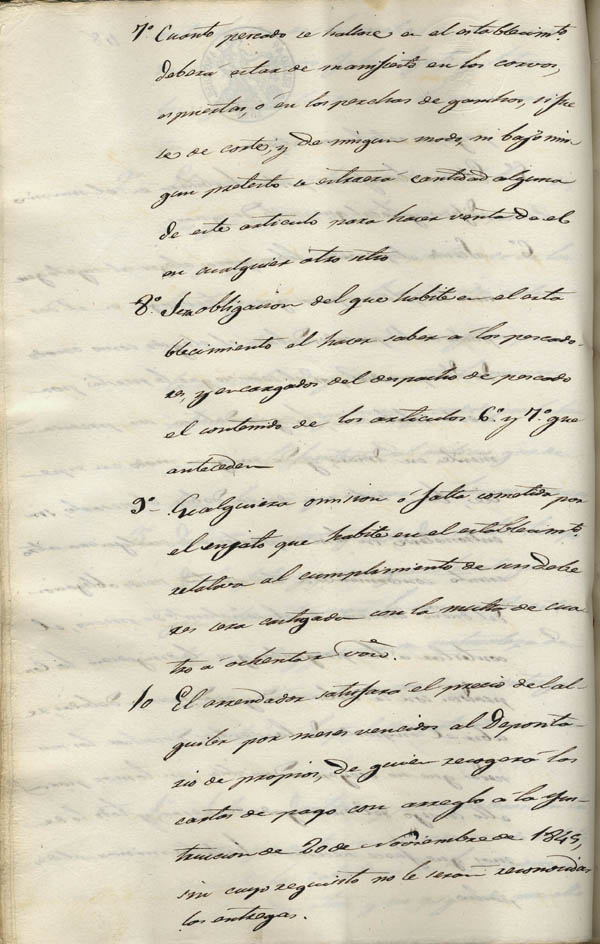 7º Cuanto pescado se hallare en el establecimto.
deberá estar de manifiesto en los corvos,
espuertas, ó en los perchas de ganchos, si fue
se de corte, y de ningun modo, ni bajo nin
gun pretesto se estraerá cantidad alguna
de este articulo para hacer venta de el
en cualquier otro sitio
8º Sera obligacion del que habite en el esta
blecimiento el hacer saber a los pescado-
res y encargados del despacho de pescado
el contenido de los articulos 6º y 7º que
anteceden
9º Cualquiera omision ó falta cometida por
el que habite en el establecimto.
relativa al cumplimiento de sus debe
res sera castigada con la multa de cua
tro á ochenta rs. von.
10 El arrendador satisfará el precio del al-
quiler por meses vencidos al Deposita-
rio de propios, de quien recogerá las
cartas de pago con arreglo á la Yns-
truccion de 20 de Noviembre de 1845,
sin cuyo requisito no le seran reconocidas
las entregas.